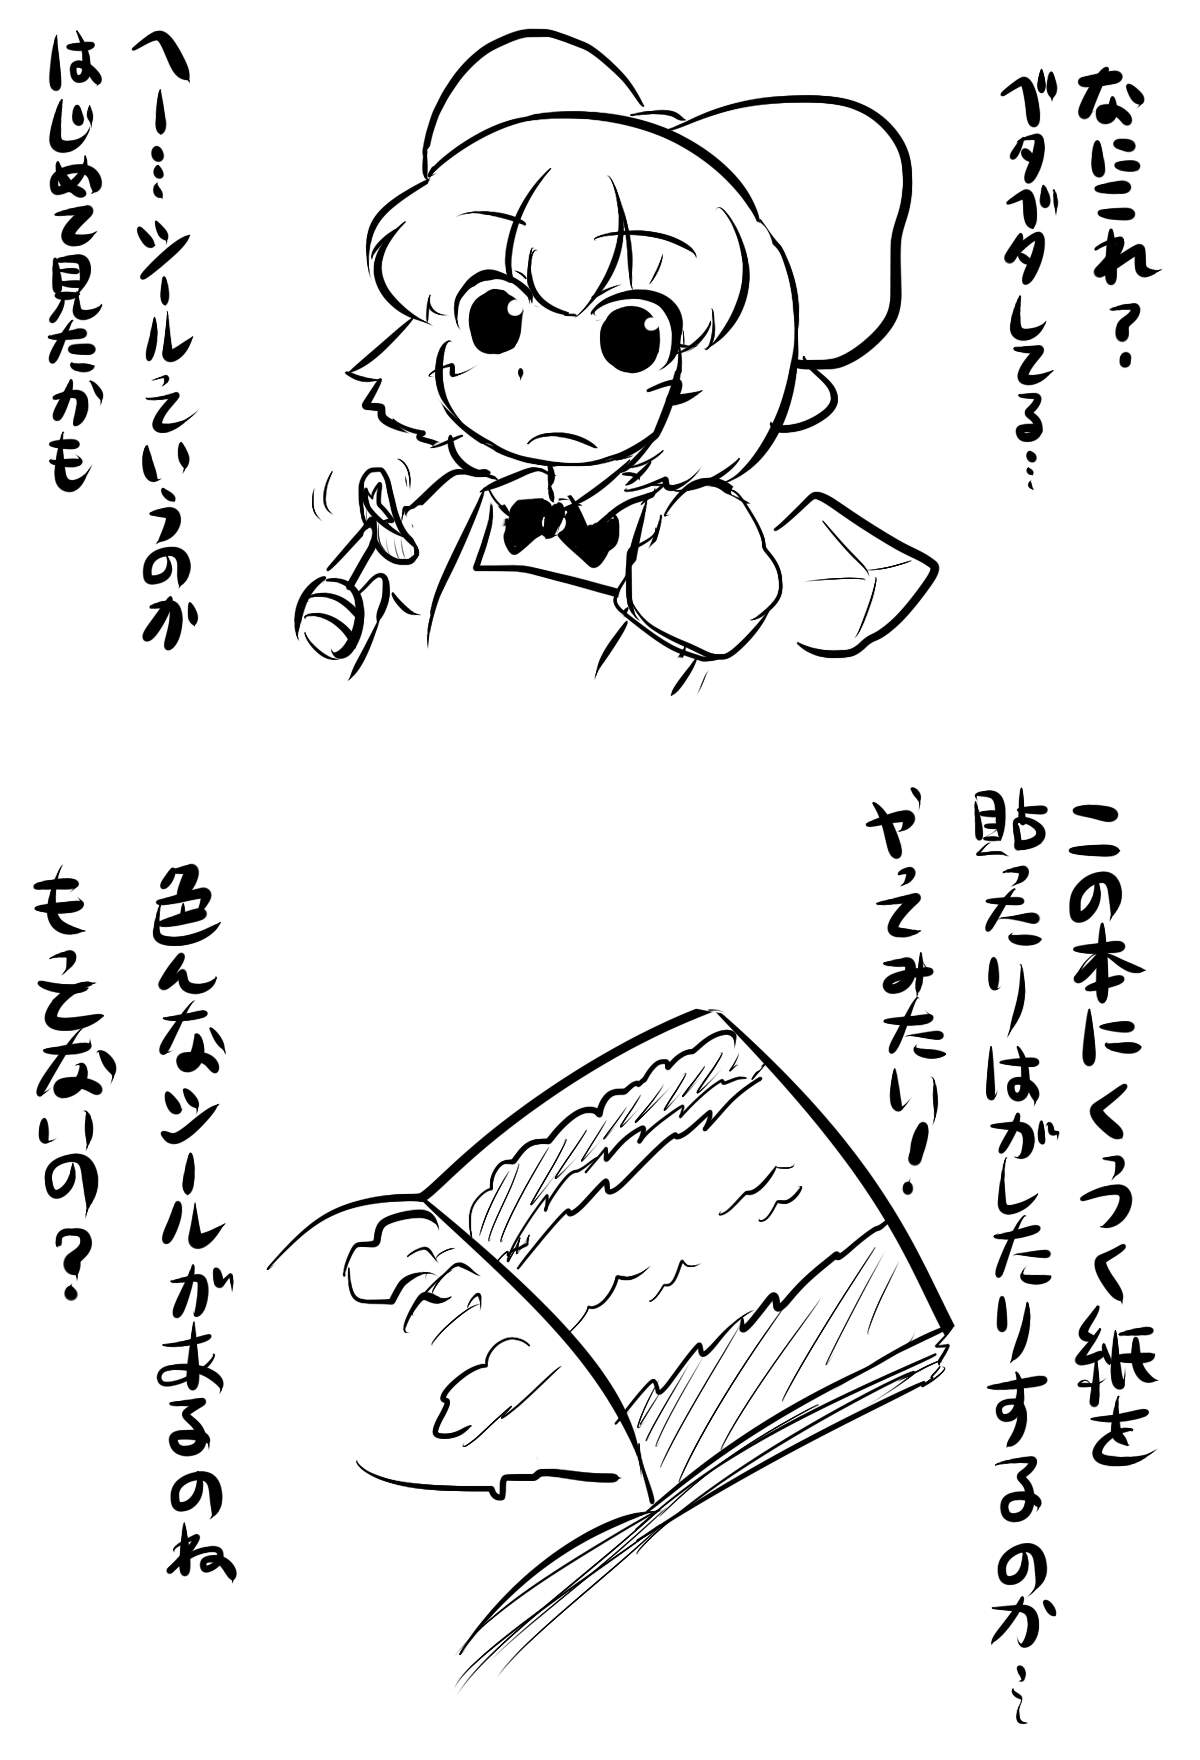 なにこれ？
ベタベタしてる…
へー…ツールっていうのか
はじめて見たかも
この本にくっつく紙を
貼ったりはがしたりするのか…
やってみたい！
色んなツールがあるのね
もってないの？